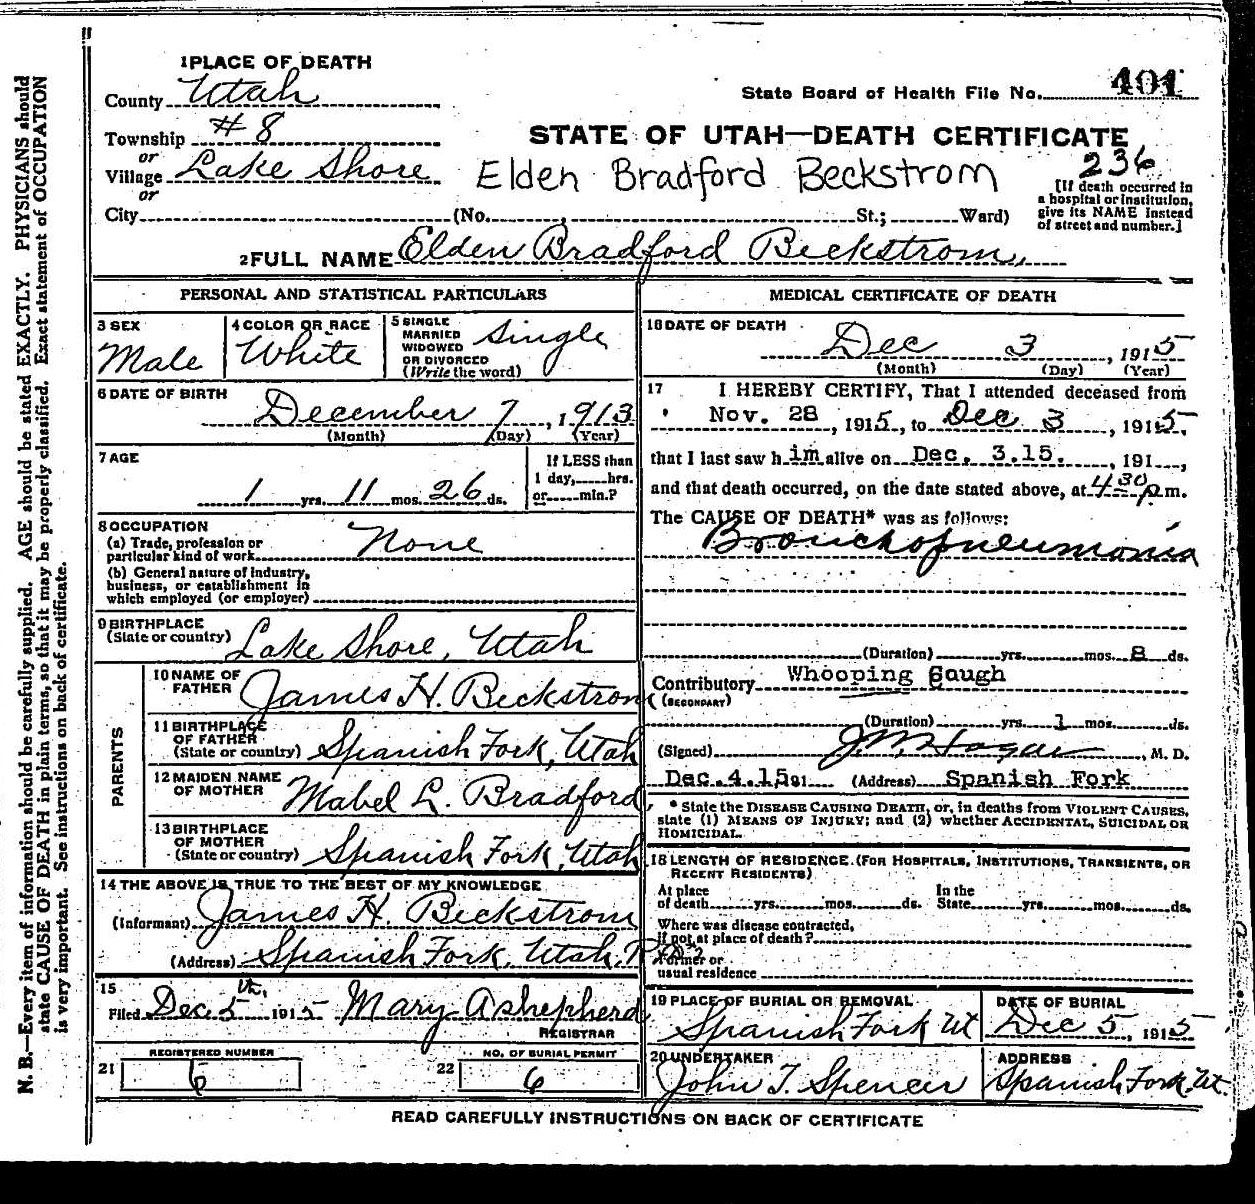 1 PLACE OF DEATH
County Utah
State Board of Health File No. 401
Township #8
or
Village Lake Shore
or
STATE OF UTAH—DEATH CERTIFICATE
236
Elden Bradford Beckstrom
[If death occurred in
a hospital or institution,
give its NAME instead
of street and number.]
City (No. , St.; Ward)
2 FULL NAME Elden Bradford Beckstrom
PERSONAL AND STATISTICAL PARTICULARS
3 SEX
Male
4 COLOR OR RACE
White
5 SINGLE
MARRIED
WIDOWED
OR DIVORCED
(Write the word)
Single
6 DATE OF BIRTH
December 7, 1913
(Month) (Day) (Year)
7 AGE
1 yrs. 11 mos. 26 ds.
If LESS than
1 day, hrs.
or min.?
8 OCCUPATION
(a) Trade, profession or
particular kind of work None
(b) General nature of industry,
business, or establishment in
which employed (or employer)
9 BIRTHPLACE
(State or country) Lake Shore, Utah
PARENTS
10 NAME OF
FATHER James H. Beckstrom
11 BIRTHPLACE
OF FATHER
(State or country) Spanish Fork, Utah
12 MAIDEN NAME
OF MOTHER Mabel L. Bradford
13 BIRTHPLACE
OF MOTHER
(State or country) Spanish Fork, Utah
14 THE ABOVE IS TRUE TO THE BEST OF MY KNOWLEDGE
(Informant) James H. Beckstrom
(Address) Spanish Fork, Utah,
15
Filed Dec. 5 1915 Mary A Shepherd
REGISTRAR
REGISTERED NUMBER
21 6
NO. OF BURIAL PERMIT
22 6
MEDICAL CERTIFICATE OF DEATH
16 DATE OF DEATH
Dec 3, 1915
(Month) (Day) (Year)
17 I HEREBY CERTIFY, That I attended deceased from
Nov. 28, 1915, to Dec 3, 1915,
that I last saw him alive on Dec. 3.15., 191 ,
and that death occurred, on the date stated above, at 4 30 p.m.
The CAUSE OF DEATH* was as follows:
Bronchopneumonia
(Duration) yrs. mos. 8 ds.
Contributory Whooping Caugh
(SECONDARY)
(Duration) yrs. 1 mos. ds.
(Signed) J.W. Hagan, M. D.
Dec.4.15 191 (Address) Spanish Fork
* State the DISEASE CAUSING DEATH, or, in deaths from VIOLENT CAUSES,
state (1) MEANS OF INJURY; and (2) whether ACCIDENTAL, SUICIDAL OR
HOMICIDAL.
18 LENGTH OF RESIDENCE (FOR HOSPITALS, INSTITUTIONS, TRANSIENTS, OR
RECENT RESIDENTS)
At place
of death yrs. mos. ds.
In the
State yrs. mos. ds.
Where was disease contracted,
if not at place of death?
Former or
usual residence
19 PLACE OF BURIAL OR REMOVAL
Spanish Fork Ut
DATE OF BURIAL
Dec 5, 1915
20 UNDERTAKER
John T. Spencer
ADDRESS
Spanish Fork Ut.
READ CAREFULLY INSTRUCTIONS ON BACK OF CERTIFICATE
N. B.—Every item of information should be carefully supplied. AGE should be stated EXACTLY. PHYSICIANS should
state CAUSE OF DEATH in plain terms, so that it may be properly classified. Exact statement of OCCUPATION
is very important. See instructions on back of certificate.